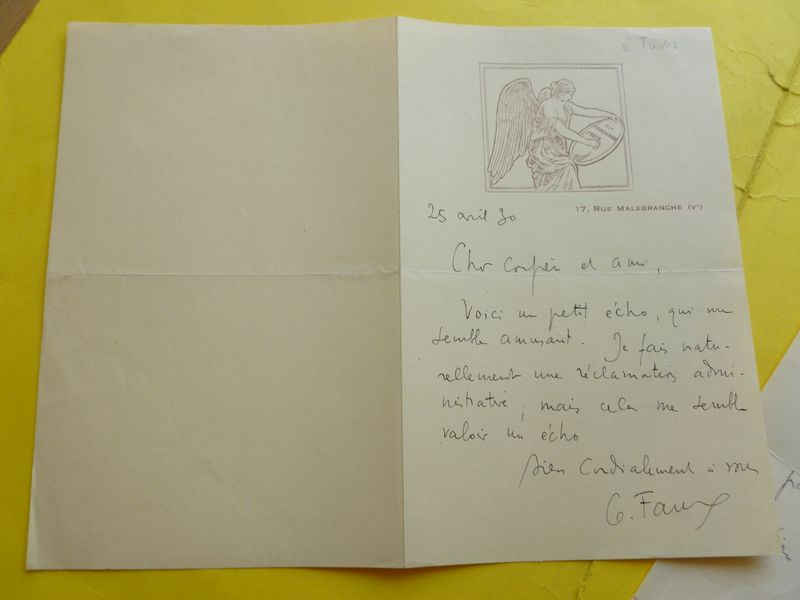 à Fuchs
17, RUE MALEBRANCHE (Vᵉ)
25 avril 30
Cher confrère et ami,
Voici un petit écho, qui me
semble amusant. Je fais natu-
rellement une réclamation admi-
nistrative; mais cela me semble
valoir un écho
Bien cordialement à vous
G. Faure